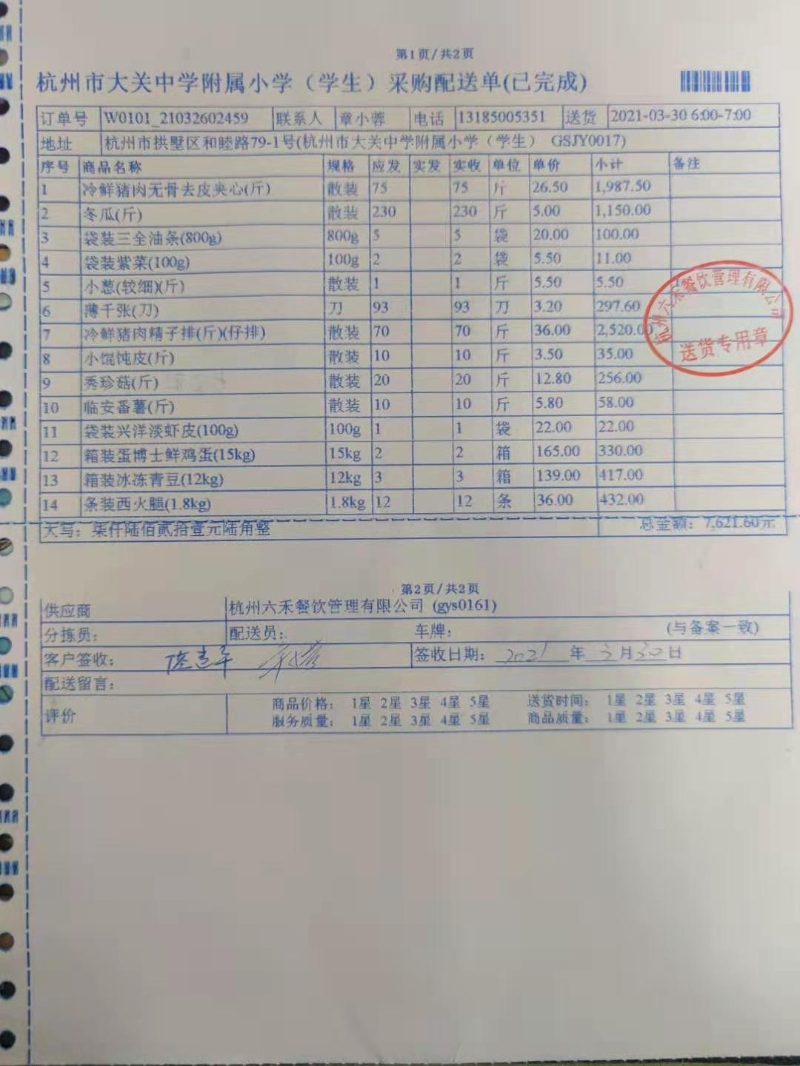 第1页/共2页
杭州市大关中学附属小学（学生）采购配送单(已完成)
订单号 W0101_21032602459 联系人 章小蓉 电话 13185005351 送货 2021-03-30 6:00-7:00
地址 杭州市拱墅区和睦路79-1号(杭州市大关中学附属小学（学生） GSJY0017)
序号 商品名称 规格 应发 实发 实收 单位 单价 小计 备注
1 冷鲜猪肉无骨去皮夹心(斤) 散装 75 75 斤 26.50 1,987.50
2 冬瓜(斤) 散装 230 230 斤 5.00 1,150.00
3 袋装三全油条(800g) 800g 5 5 袋 20.00 100.00
4 袋装紫菜(100g) 100g 2 2 袋 5.50 11.00
5 小葱(较细)(斤) 散装 1 1 斤 5.50 5.50
6 薄千张(刀) 刀 93 93 刀 3.20 297.60
7 冷鲜猪肉精子排(斤)(仔排) 散装 70 70 斤 36.00 2,520.00
8 小馄饨皮(斤) 散装 10 10 斤 3.50 35.00
9 秀珍菇(斤) 散装 20 20 斤 12.80 256.00
10 临安番薯(斤) 散装 10 10 斤 5.80 58.00
11 袋装兴洋淡虾皮(100g) 100g 1 1 袋 22.00 22.00
12 箱装蛋博士鲜鸡蛋(15kg) 15kg 2 2 箱 165.00 330.00
13 箱装冰冻青豆(12kg) 12kg 3 3 箱 139.00 417.00
14 条装西火腿(1.8kg) 1.8kg 12 12 条 36.00 432.00
杭州六禾餐饮管理有限公司
送货专用章
大写：柒仟陆佰贰拾壹元陆角整 总金额：7,621.60元
第2页/共2页
供应商 杭州六禾餐饮管理有限公司 (gys0161)
分拣员： 配送员： 车牌： (与备案一致)
客户签收： 签收日期： 2021 年 3月30日
配送留言：
评价 商品价格： 1星 2星 3星 4星 5星 送货时间： 1星 2星 3星 4星 5星
服务质量： 1星 2星 3星 4星 5星 商品质量： 1星 2星 3星 4星 5星